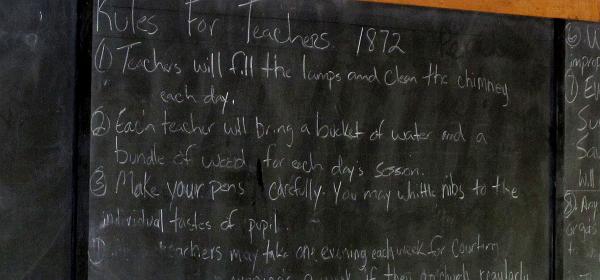 Rules For Teachers 1872
① Teachers will fill the lamps and clean the chimney
each day.
② Each teacher will bring a bucket of water and a
bundle of wood for each day's session.
③ Make your pens carefully. You may whittle nibs to the
individual tastes of pupil.
teachers may take one evening each week for courtin
evenings a week if they go church regularly
⑥ W
improp
⑦ Ev
Su
Sav
Will
⑧ Any